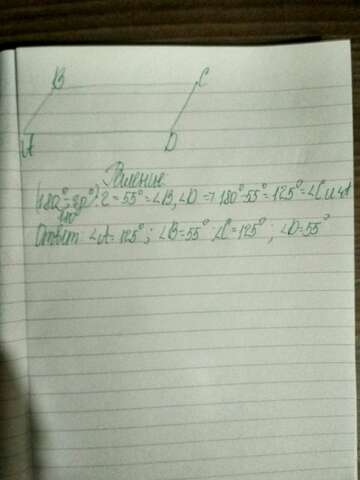 B C
A D
Решение
(180°-70°):2=55°=∠B,∠D =7 180°-55°=125°=∠C и ∠A
110°
Ответ ∠A=125°; ∠B=55° ∠C=125°; ∠D=55°